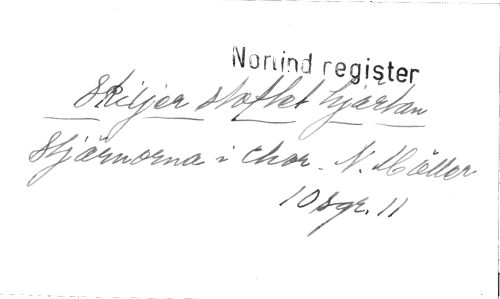 Norlind register
Skiljer stoftet hjärtan
Stjärnorna i chor. N. Möller
10 sgr. 11